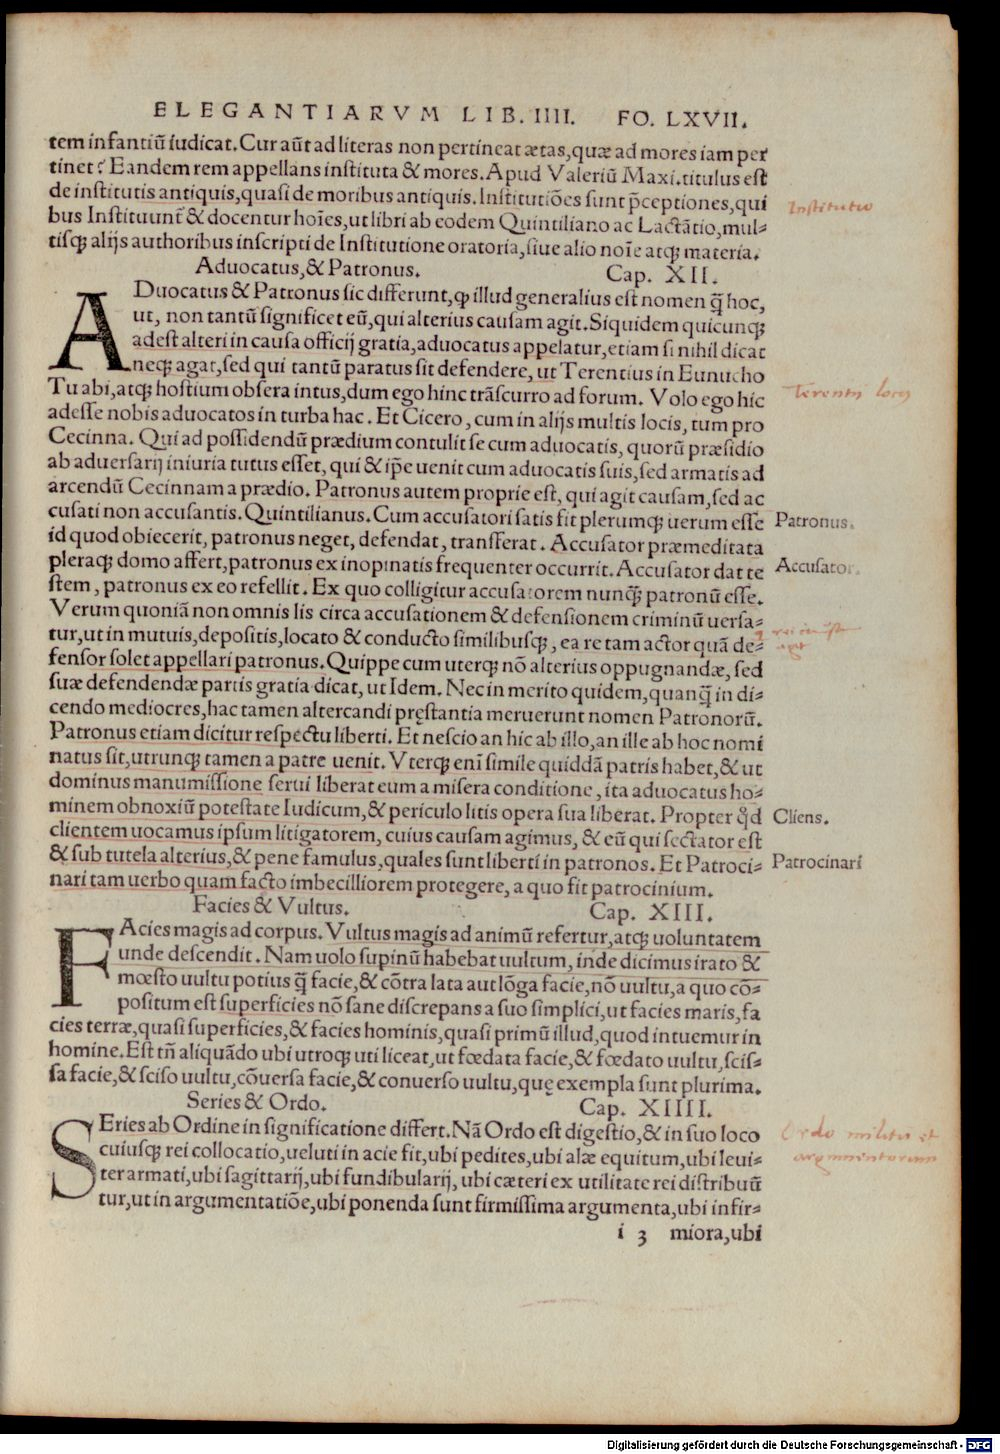 ELEGANTIARVM LIB. IIII. FO. LXVII.
tem infantiũ iudicat. Cur aũt ad literas non pertineat ætas, quæ ad mores iam per
tinet? Eandem rem appellans instituta & mores. Apud Valeriũ Maxi. titulus est
de institutis antiquis, quasi de moribus antiquis. Institutiões sunt p̃ceptiones, qui
bus Instituunt̃ & docentur hoĩes, ut libri ab eodem Quintiliano ac Lactãtio, mul-
tisq; alijs authoribus inscripti de Institutione oratoria, siue alio noĩe atq; materia.
Institutio
Aduocatus, & Patronus. Cap. XII.
ADuocatus & Patronus sic differunt, ꝙ illud generalius est nomen q̃ hoc,
ut, non tantũ significet eũ, qui alterius causam agit. Siquidem quicunq;
adest alteri in causa officij gratia, aduocatus appelatur, etiam si nihil dicat
neq; agat, sed qui tantũ paratus sit defendere, ut Terentius in Eunucho
Tu abi, atq; hostium obsera intus, dum ego hinc trãscurro ad forum. Volo ego hic
adesse nobis aduocatos in turba hac. Et Cicero, cum in alijs multis locis, tum pro
Cecinna. Qui ad possidendũ prædium contulit se cum aduocatis, quorũ præsidio
ab aduersarij iniuria tutus esset, qui & ip̃e uenit cum aduocatis suis, sed armatis ad
arcendũ Cecinnam a prædio. Patronus autem proprie est, qui agit causam, sed ac
cusati non accusantis. Quintilianus. Cum accusatori satis fit plerumq; uerum esse
id quod obiecerit, patronus neget, defendat, transferat. Accusator præmeditata
pleraq; domo affert, patronus ex inopinatis frequenter occurrit. Accusator dat te
stem, patronus ex eo refellit. Ex quo colligitur accusatorem nunq̃ patronũ esse.
Verum quoniã non omnis lis circa accusationem & defensionem criminũ uersa-
tur, ut in mutuis, depositis, locato & conducto similibusq;, ea re tam actor quã de-
fensor solet appellari patronus. Quippe cum uterq; nõ alterius oppugnandæ, sed
suæ defendendæ partis gratia dicat, ut Idem. Nec in merito quidem, quanq̃ in di-
cendo mediocres, hac tamen altercandi pręstantia meruerunt nomen Patronorũ.
Patronus etiam dicitur respectu liberti. Et nescio an hic ab illo, an ille ab hoc nomi
natus sit, utrunq; tamen a patre uenit. Vterq; enĩ simile quiddã patris habet, & ut
dominus manumissione serui liberat eum a misera conditione, ita aduocatus ho-
minem obnoxiũ potestate Iudicum, & periculo litis opera sua liberat. Propter qd̃
clientem uocamus ipsum litigatorem, cuius causam agimus, & eũ qui sectator est
& sub tutela alterius, & pene famulus, quales sunt liberti in patronos. Et Patroci-
nari tam uerbo quam facto imbecilliorem protegere, a quo fit patrocinium.
Terentij locus
Patronus.
Accusator.
Cliens.
Patrocinari
Facies & Vultus. Cap. XIII.
FAcies magis ad corpus. Vultus magis ad animũ refertur, atq; uoluntatem
unde descendit. Nam uolo supinũ habebat uultum, inde dicimus irato &
mœsto uultu potius q̃ facie, & cõtra lata aut lõga facie, nõ uultu, a quo cõ-
positum est superficies nõ sane discrepans a suo simplici, ut facies maris, fa
cies terræ, quasi superficies, & facies hominis, quasi primũ illud, quod intuemur in
homine. Est tñ aliquãdo ubi utroq; uti liceat, ut fœdata facie, & fœdato uultu, scis-
sa facie, & sciso uultu, cõuersa facie, & conuerso uultu, quę exempla sunt plurima.
Series & Ordo. Cap. XIIII.
SEries ab Ordine in significatione differt. Nã Ordo est digestio, & in suo loco
cuiusq; rei collocatio, ueluti in acie fit, ubi pedites, ubi alæ equitum, ubi leui-
ter armati, ubi sagittarij, ubi fundibularij, ubi cæteri ex utilitate rei distribuũ
tur, ut in argumentatiõe, ubi ponenda sunt firmissima argumenta, ubi infir-
Ordo militũ et
argumentorum
i 3 miora, ubi
Digitalisierung gefördert durch die Deutsche Forschungsgemeinschaft - DFG